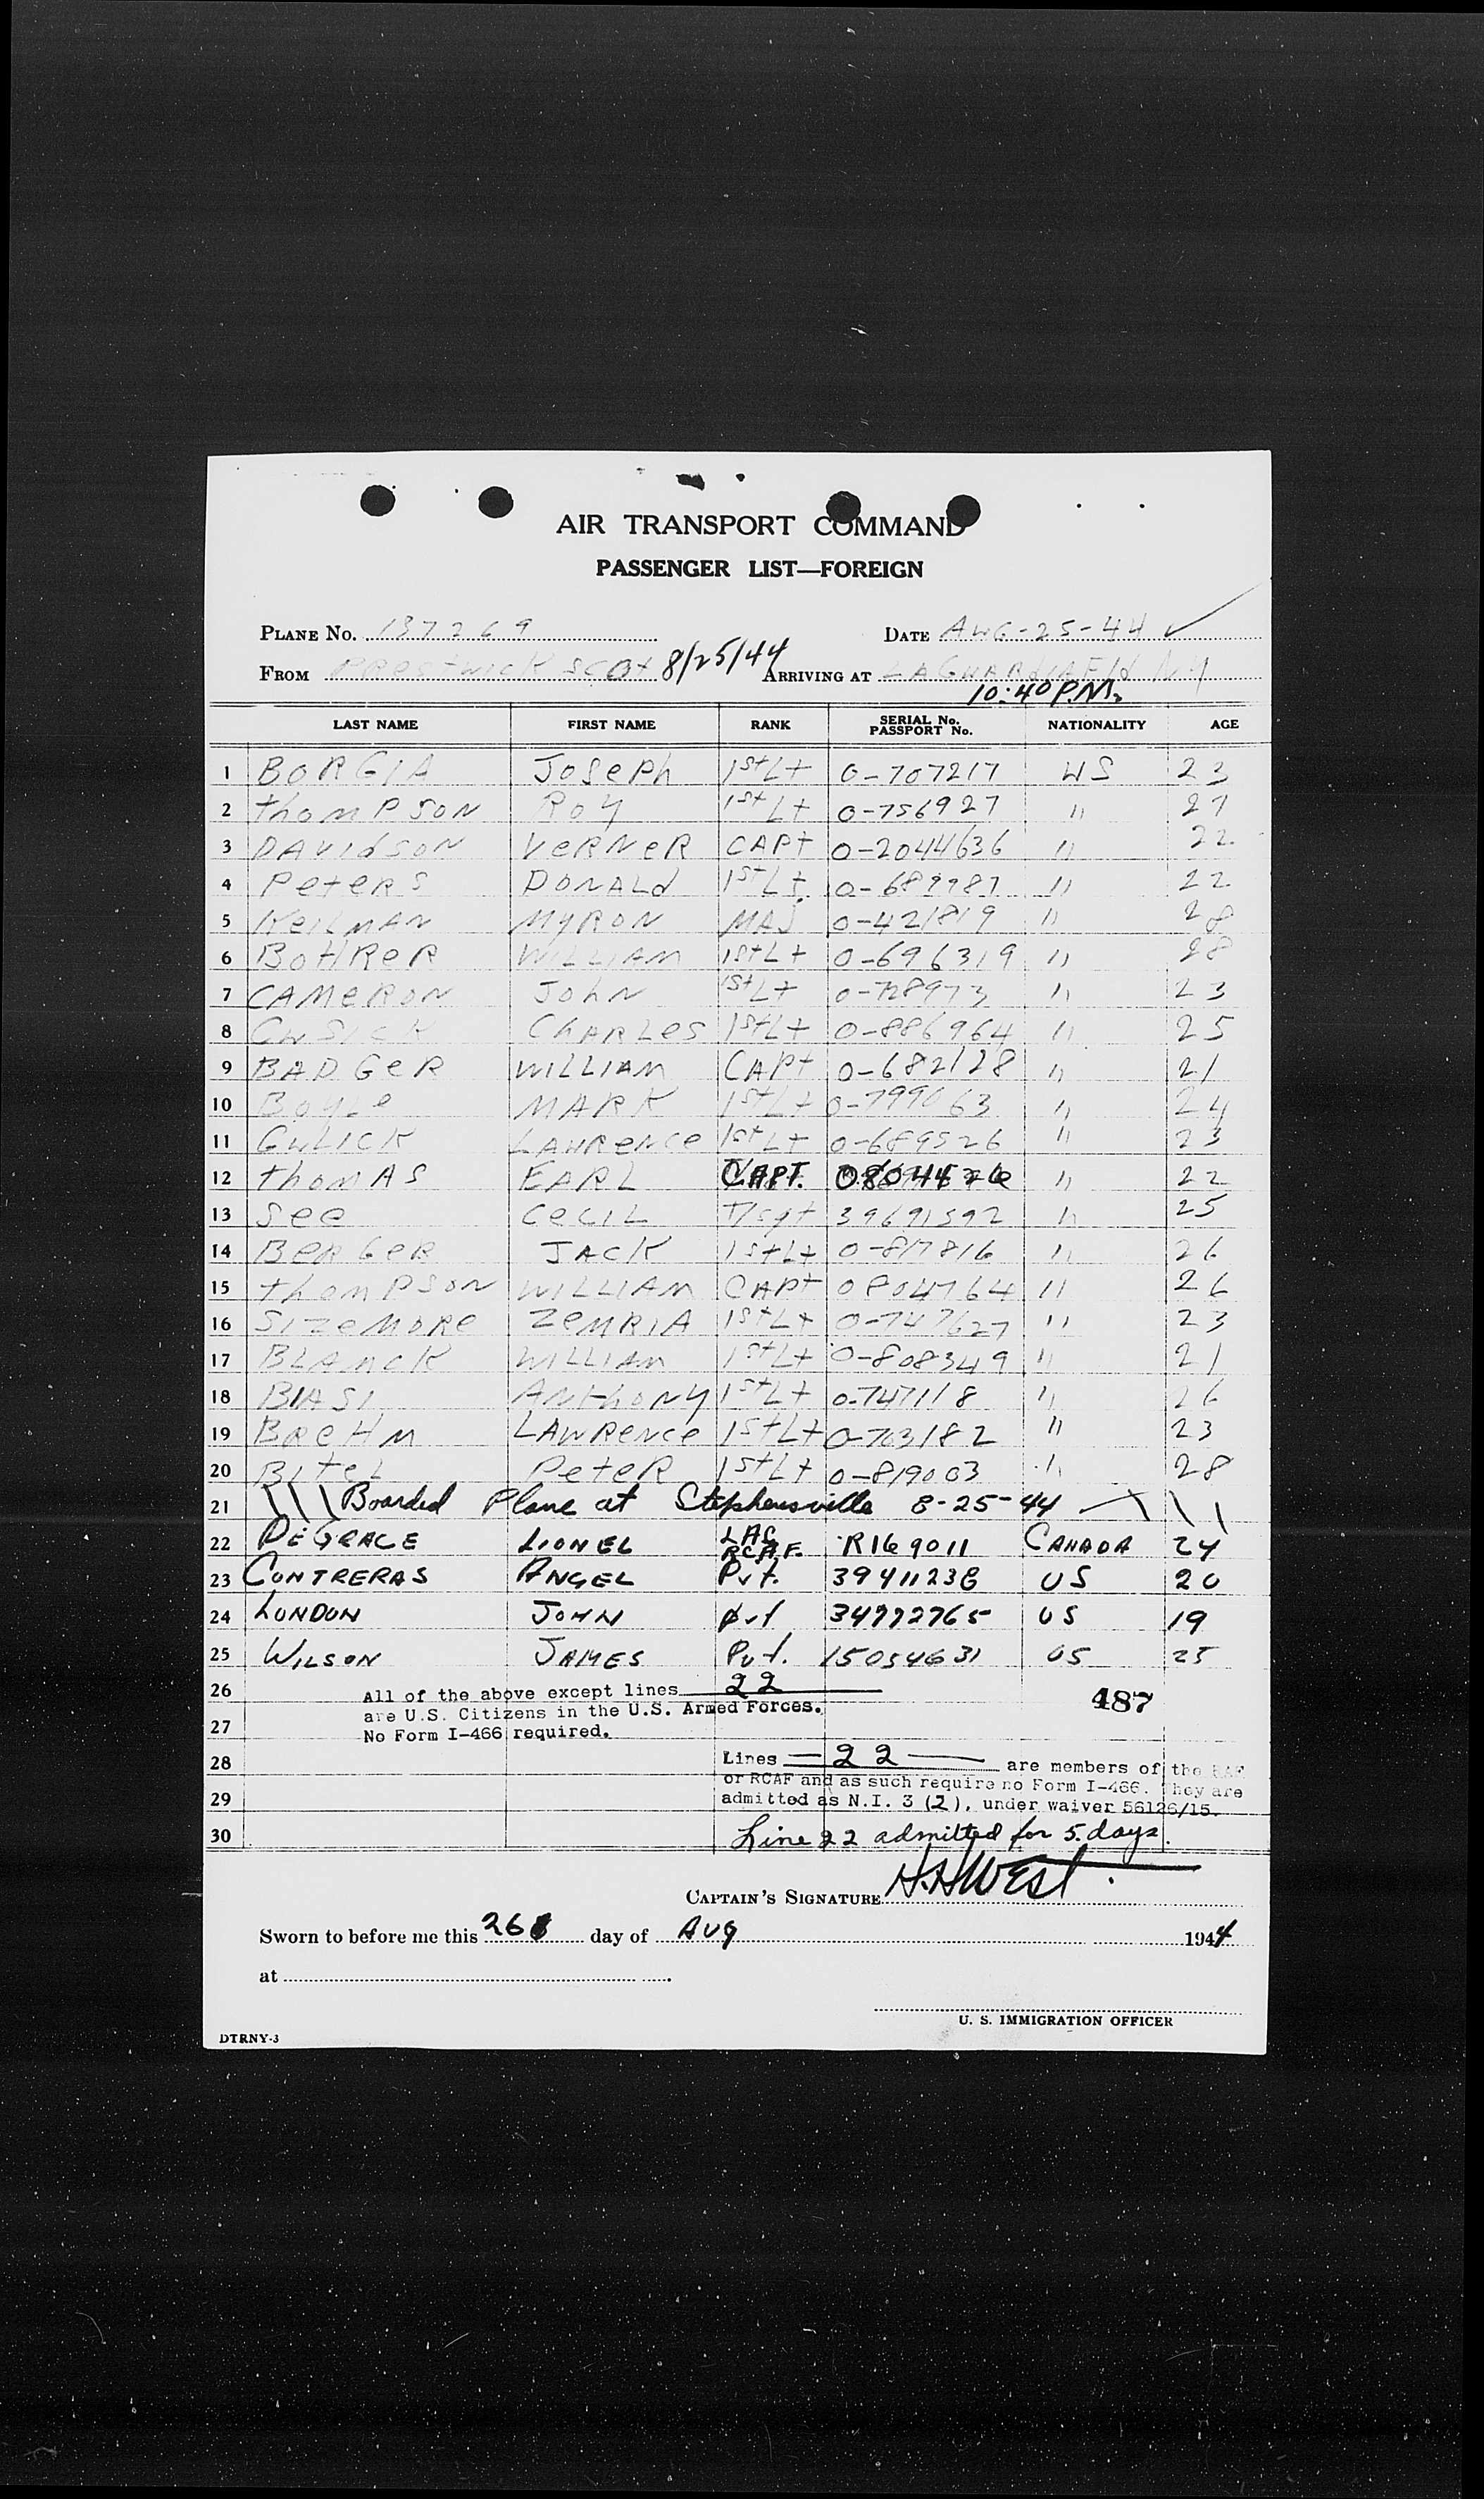 AIR TRANSPORT COMMAND
PASSENGER LIST—FOREIGN
PLANE No. 137269 DATE AUG-25-44
FROM PRestwick SCOt 8/25/44 ARRIVING AT LAGUARdIA Fld NY
10:40 P.M.
LAST NAME FIRST NAME RANK SERIAL No. PASSPORT No. NATIONALITY AGE
1 BORGIA JoSePh 1st Lt 0-707217 US 23
2 thomPSON ROY 1st Lt 0-756927 " 27
3 DAVIdSON VeRNeR CAPt 0-2044636 " 22
4 PeteRS DONALd 1st Lt 0-689987 " 22
5 KeILMAN MYRON MAJ 0-421819 " 28
6 BoHReR WILLIAM 1st Lt 0-696319 " 28
7 CAMeRON JOhN 1st Lt 0-728973 " 23
8 CUSICK ChARLeS 1st Lt 0-886964 " 25
9 BADGeR WILLIAM CAPt 0-682128 " 21
10 BoyLe MARK 1st Lt 0-799063 " 24
11 GULICK LAUReNCe 1st Lt 0-689526 " 23
12 thomAS EARL CAPT. " 22
13 See CeCIL T/sgt 39691592 " 25
14 BeRGeR JACK 1st Lt 0-817816 " 26
15 thomPSON WILLIAM CAPt 0804764 " 26
16 SIzeMoRe ZeMRIA 1st Lt 0-747627 " 23
17 BLANCK WILLIAM 1st Lt 0-808349 " 21
18 BIASI ANthoNy 1st Lt 0-747118 " 26
19 BReHM LAWReNCe 1st Lt 0-763182 " 23
20 BIteL PeteR 1st Lt 0-819003 " 28
21 Boarded Plane at Stephensville 8-25-44
22 DEGRACE LIONEL LAC RCAF. R169011 CANADA 24
23 CONTRERAS ANGEL Pvt. 39411238 US 20
24 LONDON JOHN pvt 34992765 US 19
25 WILSON JAMES Pvt. 15054631 US 25
26 All of the above except lines 22
are U.S. Citizens in the U.S. Armed Forces. 487
27 No Form I-466 required.
28 Lines — 22 — are members of the RAF
or RCAF and as such require no Form I-466. They are
29 admitted as N.I. 3 (2), under waiver 56126/15.
30 Line 22 admitted for 5 days.
CAPTAIN'S SIGNATURE H.H West
Sworn to before me this 26 day of Aug 1944
at
U. S. IMMIGRATION OFFICER
DTRNY-3